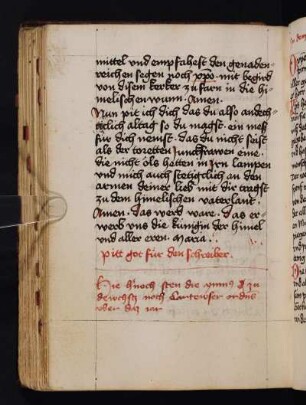 mittel und empfahest den genaden
reichen segen noch xpo mit begird
von disem kerker zu farn in die hi
melischen wunn. Amen.
Nun pit ich dich das du also andech
tiklich altag so du magst. ein mess
für dich nemst. das du nicht seist
als der toretten Junckfrawen eine
die nicht öls hetten in Irn lampen
und mich auch stetiglich an den
armen deiner lieb mit dir tragst
zu dem himelischen vaterland.
Amen. das werd ware. das er
werb uns die künigin der himel
und aller eren. Maria.
Pitt got für den schreiber.
Hie noch sten die
noch